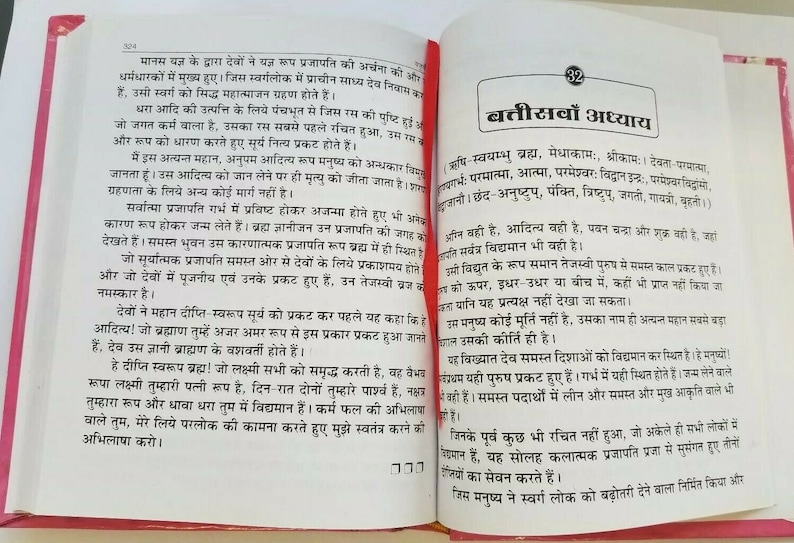 324
मानस यज्ञ के द्वारा देवों ने यज्ञ रूप प्रजापति की अर्चना की और
धर्मधारकों में मुख्य हुए। जिस स्वर्गलोक में प्राचीन साध्य देव निवास कर
हैं, उसी स्वर्ग को सिद्ध महात्माजन ग्रहण होते हैं।
धरा आदि की उत्पत्ति के लिये पंचभूत से जिस रस की पुष्टि हुई औ
जो जगत कर्म वाला है, उसका रस सबसे पहले रचित हुआ, उस रस क
और रूप को धारण करते हुए सूर्य नित्य प्रकट होते हैं।
मैं इस अत्यन्त महान, अनुपम आदित्य रूप मनुष्य को अन्धकार विमुख
जानता हूं। उस आदित्य को जान लेने पर ही मृत्यु को जीता जाता है। शरण
ग्रहणता के लिये अन्य कोई मार्ग नहीं है।
सर्वात्मा प्रजापति गर्भ में प्रविष्ट होकर अजन्मा होते हुए भी अनेक
कारण रूप होकर जन्म लेते हैं। ब्रह्म ज्ञानीजन उन प्रजापति की जगह को
देखते हैं। समस्त भुवन उस कारणात्मक प्रजापति रूप ब्रह्म में ही स्थित है
जो सूर्यात्मक प्रजापति समस्त ओर से देवों के लिये प्रकाशमय होते हैं
और जो देवों में पूजनीय एवं उनके प्रकट हुए हैं, उन तेजस्वी ब्रज को
नमस्कार है।
देवों ने महान दीप्ति-स्वरूप सूर्य को प्रकट कर पहले यह कहा कि हे
आदित्य! जो ब्रह्माण तुम्हें अजर अमर रूप से इस प्रकार प्रकट हुआ जानते
हैं, देव उस ज्ञानी ब्राह्मण के वशवर्ती होते हैं।
हे दीप्ति स्वरूप ब्रह्म! जो लक्ष्मी सभी को समृद्ध करती है, वह वैभव
रूपा लक्ष्मी तुम्हारी पत्नी रूप है, दिन-रात दोनों तुम्हारे पार्श्व हैं, नक्षत्र
तुम्हारा रूप और धावा धरा तुम में विद्यमान हैं। कर्म फल की अभिलाषा
वाले तुम, मेरे लिये परलोक की कामना करते हुए मुझे स्वतंत्र करने की
अभिलाषा करो।
32
बत्तीसवाँ अध्याय
( ऋषि-स्वयम्भु ब्रह्म, मेधाकामः, श्रीकामः। देवता-परमात्मा,
हिरण्यगर्भः परमात्मा, आत्मा, परमेश्वरः विद्वान इन्द्रः, परमेश्वर विद्वांसो,
विद्वाजानौ। छंद-अनुष्टुप्, पंक्ति, त्रिष्टुप्, जगती, गायत्री, बृहती। )
अग्नि वही है, आदित्य वही है, पवन चन्द्रा और शुक्र वही है, जहां
प्रजापति सर्वत्र विद्यमान भी वही है।
उसी विद्युत के रूप समान तेजस्वी पुरुष से समस्त काल प्रकट हुए हैं।
पुरुष को ऊपर, इधर-उधर या बीच में, कहीं भी प्राप्त नहीं किया जा
सकता यानि यह प्रत्यक्ष नहीं देखा जा सकता।
उस मनुष्य कोई मूर्ति नहीं है, उसका नाम ही अत्यन्त महान सबसे बड़ा
उसकी कीर्ति ही है।
यह विख्यात देव समस्त दिशाओं को विद्यमान कर स्थित है। हे मनुष्यों!
सर्वप्रथम यही पुरुष प्रकट हुए हैं। गर्भ में यही स्थित होते हैं। जन्म लेने वाले
भी वही हैं। समस्त पदार्थों में लीन और समस्त और मुख आकृति वाले भी
वही हैं।
जिनके पूर्व कुछ भी रचित नहीं हुआ, जो अकेले ही सभी लोकों में
विद्यमान हैं, यह सोलह कलात्मक प्रजापति प्रजा से सुसंगत हुए तीनों
दीप्तियों का सेवन करते हैं।
जिस मनुष्य ने स्वर्ग लोक को बढ़ोतरी देने वाला निर्मित किया और